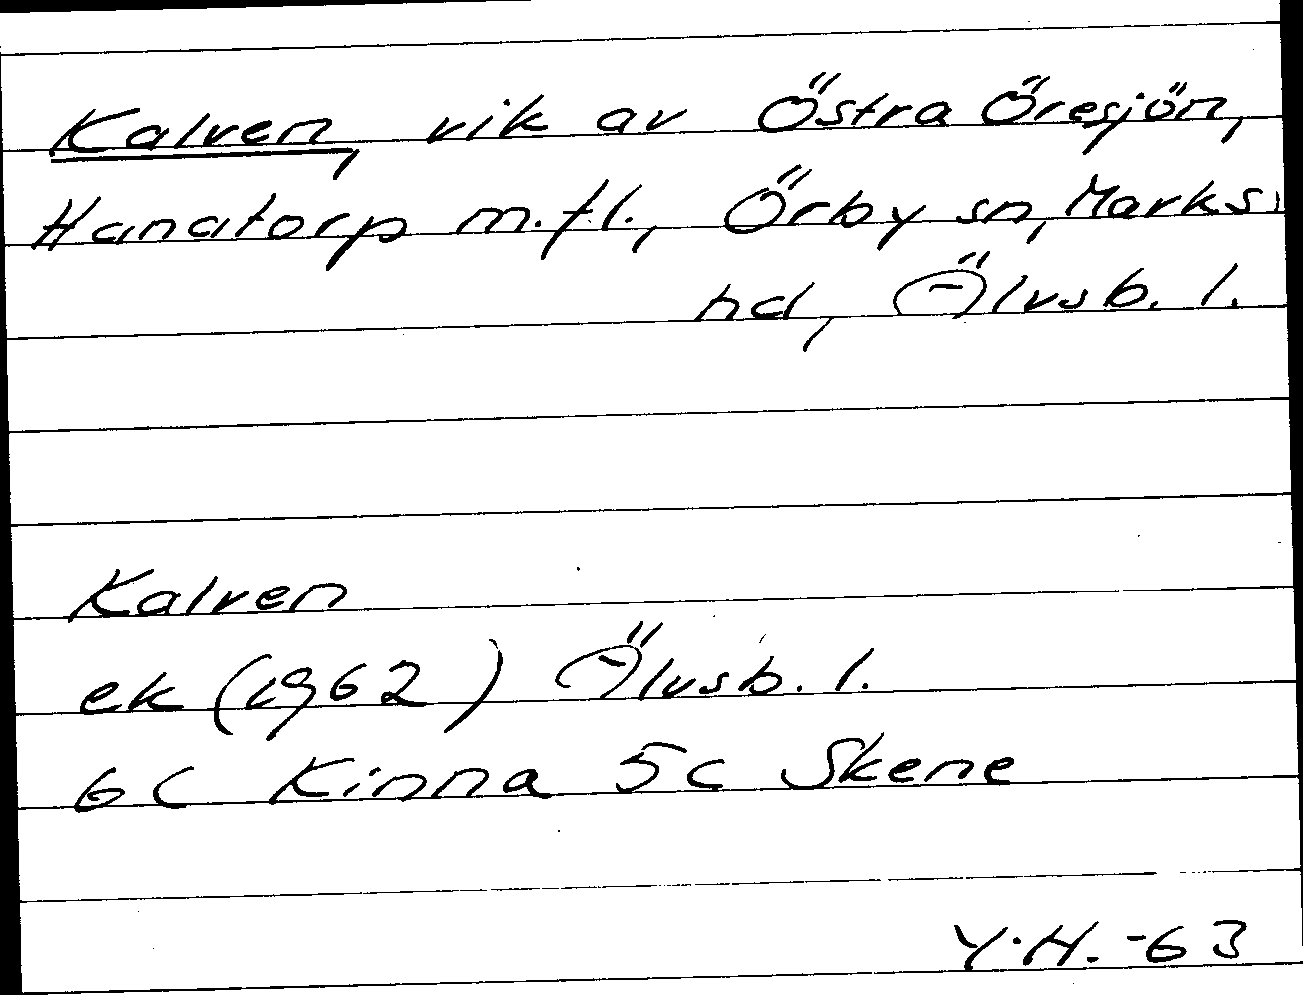 Kalven, vik av Östra Öresjön,
Hanatorp m.fl., Örby sn, Marks
hd, Älvsb. l.
Kalven
ek (1962) Älvsb. l.
6C Kinna 5c Skene
Y.H. -63